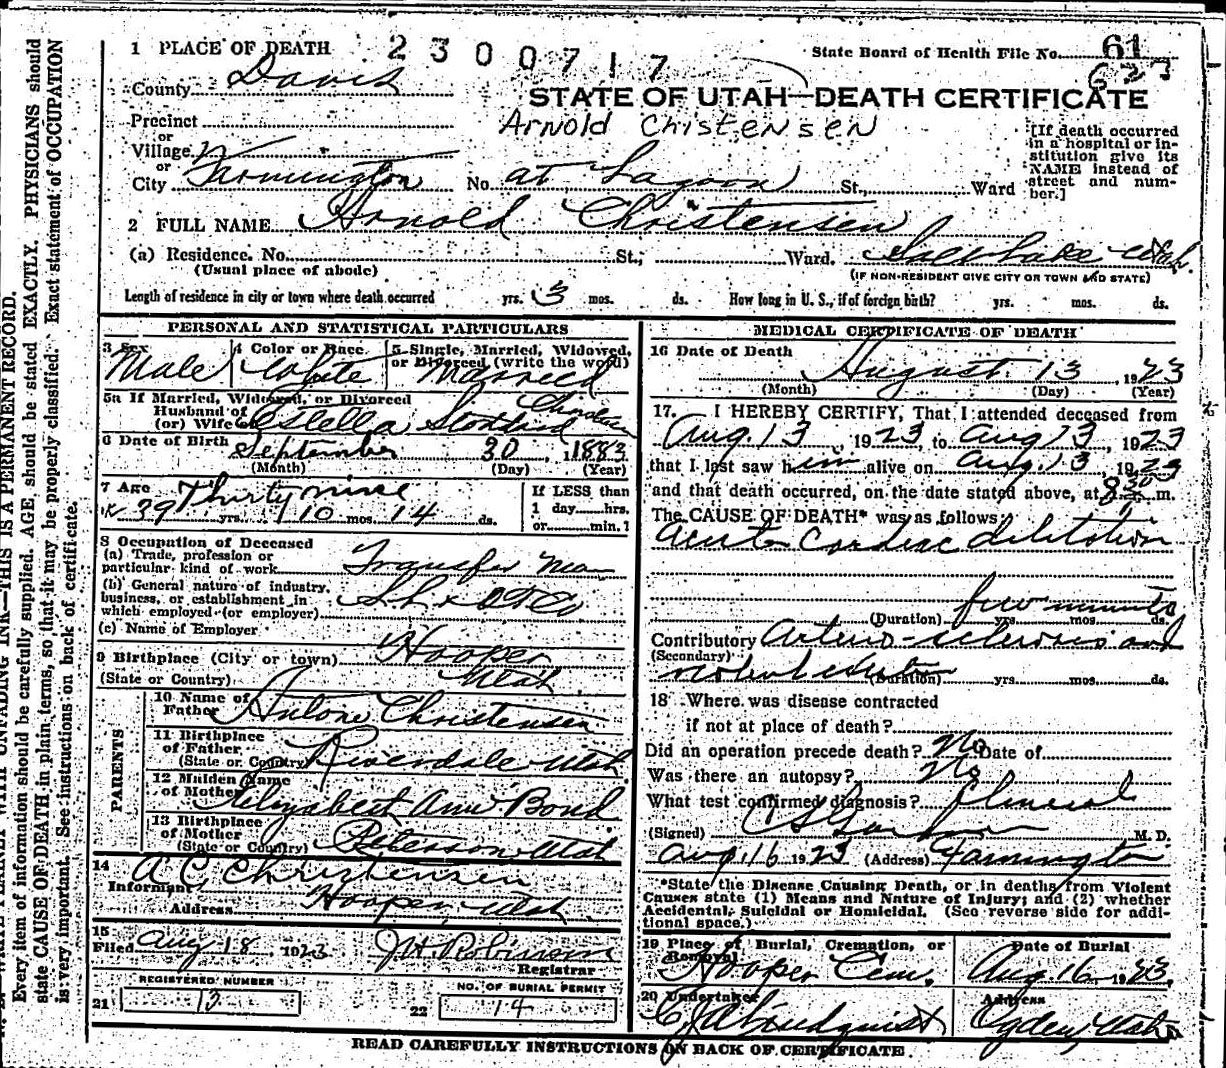 1 PLACE OF DEATH
2300717
State Board of Health File No. 61
627
County Davis
STATE OF UTAH—DEATH CERTIFICATE
Precinct
Arnold Christensen
or
Village
or
City Farmington No. at Lagoon St., Ward
[If death occurred
in a hospital or in-
stitution give its
NAME instead of
street and num-
ber.]
2 FULL NAME Arnold Christensen
(a) Residence. No. St., Ward. Salt Lake Utah.
(Usual place of abode)
(IF NON-RESIDENT GIVE CITY OR TOWN AND STATE)
Length of residence in city or town where death occurred yrs. 3 mos. ds. How long in U. S., if of foreign birth? yrs. mos. ds.
PERSONAL AND STATISTICAL PARTICULARS
3 Sex
Male
4 Color or Race
White
5 Single, Married, Widowed,
or Divorced (write the word)
Married
5a If Married, Widowed, or Divorced
Husband of
(or) Wife of Estella Stoddard
6 Date of Birth September 30, 1883
(Month) (Day) (Year)
7 Age Thirty nine
39 yrs. 10 mos. 14 ds.
If LESS than
1 day hrs.
or min.?
8 Occupation of Deceased
(a) Trade, profession or
particular kind of work Transfer Man
(b) General nature of industry,
business, or establishment in
which employed (or employer)
(c) Name of Employer
9 Birthplace (City or town) Hooper
(State or Country) Utah
PARENTS
10 Name of
Father Antone Christensen
11 Birthplace
of Father
(State or Country) Riverdale Utah
12 Maiden Name
of Mother Elizabeth Ann Bond
13 Birthplace
of Mother
(State or Country) Peterson Utah
14
Informant A C Christensen
Address Hooper, Utah
15
Filed Aug 18, 1923 J H Robinson
Registrar
REGISTERED NUMBER
21 13
NO. OF BURIAL PERMIT
22 14
MEDICAL CERTIFICATE OF DEATH
16 Date of Death
August 13, 1923
(Month) (Day) (Year)
17. I HEREBY CERTIFY, That I attended deceased from
Aug. 13, 1923 to Aug 13, 1923
that I last saw him alive on Aug. 13, 1923
and that death occurred, on the date stated above, at 8:30 m.
The CAUSE OF DEATH* was as follows:
Acute Cardiac dilitation
few minutes
(Duration) yrs. mos. ds.
Contributory Arterio-sclerosis and
(Secondary)
(Duration) yrs. mos. ds.
18 Where was disease contracted
if not at place of death?
Did an operation precede death? No Date of
Was there an autopsy? No
What test confirmed diagnosis?
(Signed) M. D.
Aug, 16 1923 (Address) Farmington
*State the Disease Causing Death, or in deaths from Violent
Causes state (1) Means and Nature of Injury; and (2) whether
Accidental, Suicidal or Homicidal. (See reverse side for addi-
tional space.)
19 Place of Burial, Cremation, or
Removal
Hooper Cem.
Date of Burial
Aug. 16, 1923
20 Undertaker
Address
Ogden, Utah
READ CAREFULLY INSTRUCTIONS ON BACK OF CERTIFICATE.
INK—THIS IS A PERMANENT RECORD.
Every item of information should be carefully supplied. AGE should be stated EXACTLY. PHYSICIANS should
state CAUSE OF DEATH in plain terms, so that it may be properly classified. Exact statement of OCCUPATION
is very important. See instructions on back of certificate.